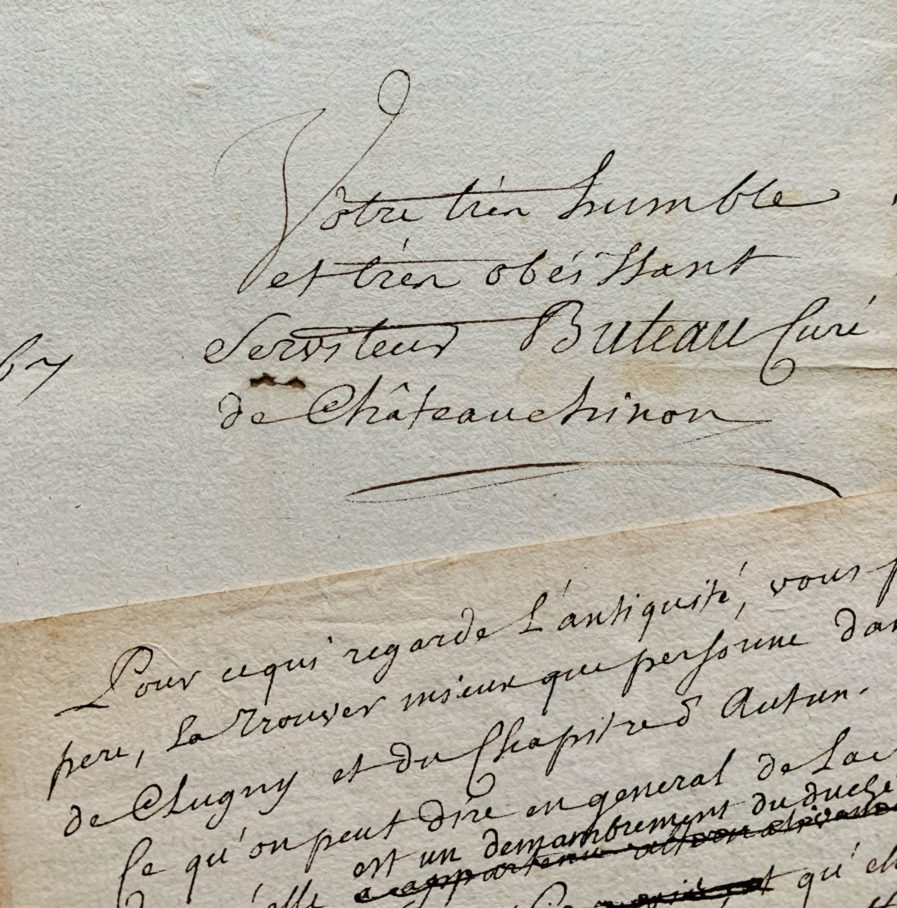 Votre trèn humble
et trèn obéissant
Serviteur Buteau Curé
de Châteauchinon
Pour cequi regarde L'antiquité, vous
pere, La trouver mieux que personne dan
de Clugny et du Chapitre d'Autun.
Ce qu'on peut dire en general de La
est un demambrement du duché
elle
et qu'el